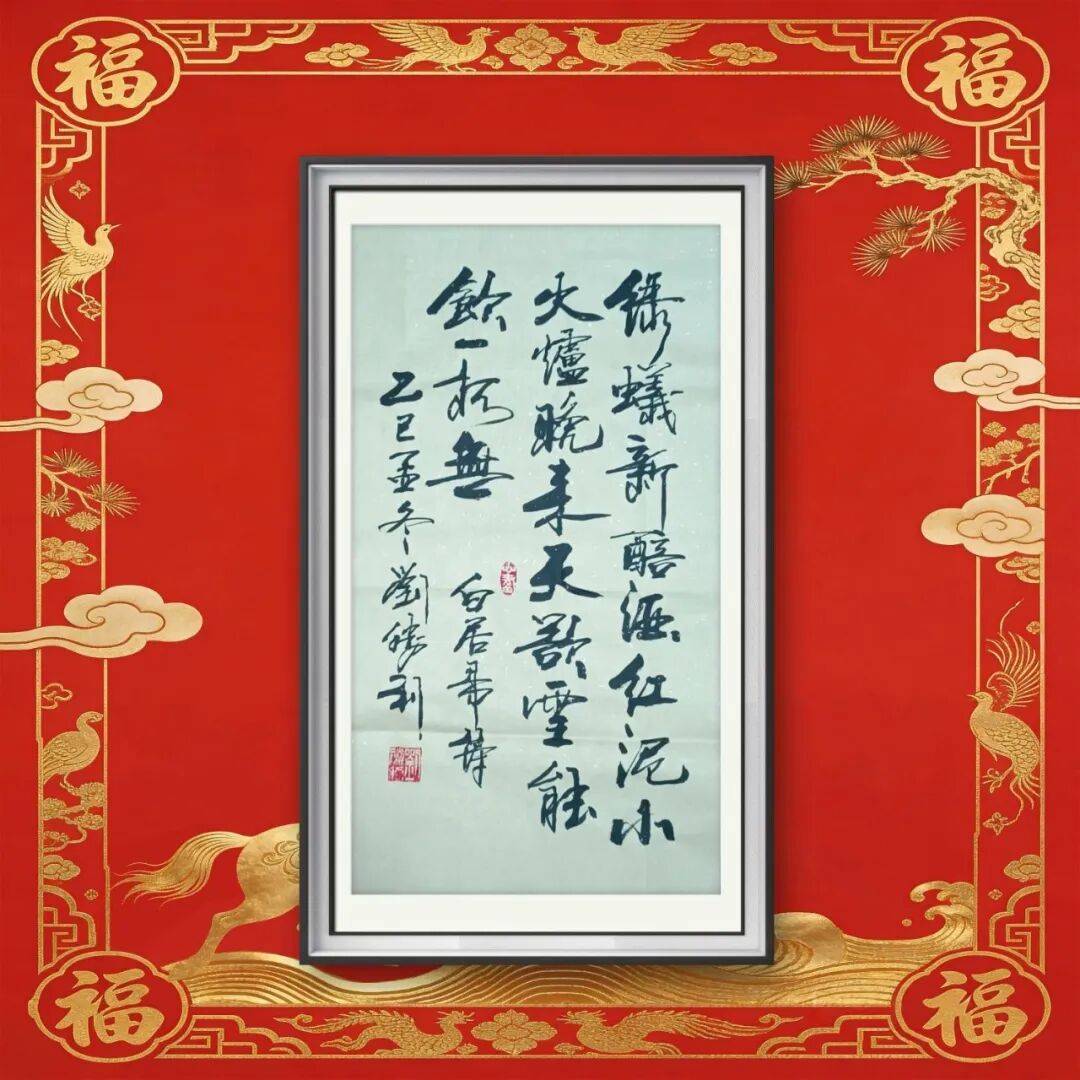 福
福
綠蟻新醅酒红泥小
火爐晚来天欲雪能
飲一杯無
白居易詩
乙巳孟冬劉勝利
福
福